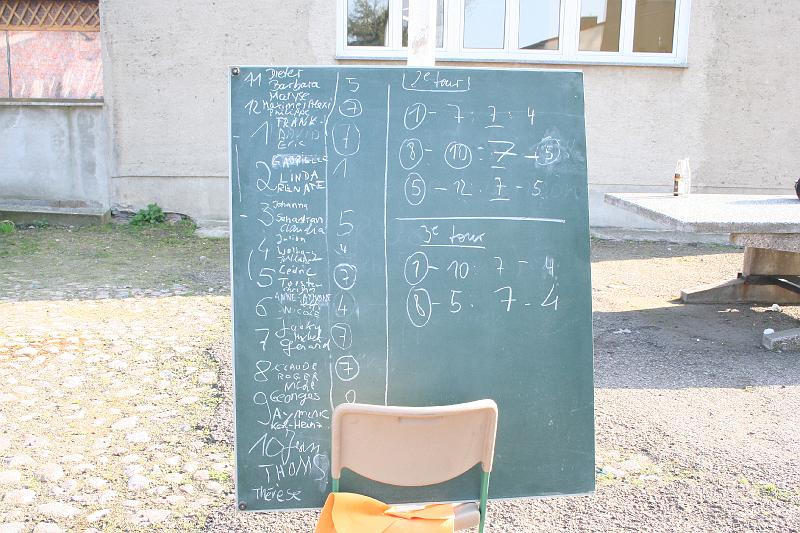 11 Dieter 5
Barbara
Maryse
12 Maxime/Maxi 7
Philippe
1 FRANK 7
DAVID
Eric
2 GABRIELLE 1
LINDA
RENATE
3 Johanna 5
Sebastian
Claudia
4 Julien 4
5 Cédric 7
6 ANNE-AYMONE 4
Nicole
7 Jacky 7
Gérard
8 CLAUDE 7
ROGER
9 Georges
Aymeric
Karl-Heinz
10 Jean
THOMS
Thérèse
2e tour
1 - 7 : 7 : 4
8 - 10 : 7 - 5
5 - 12 : 7 - 5
3e tour
1 - 10 : 7 - 4
8 - 5 : 7 - 4